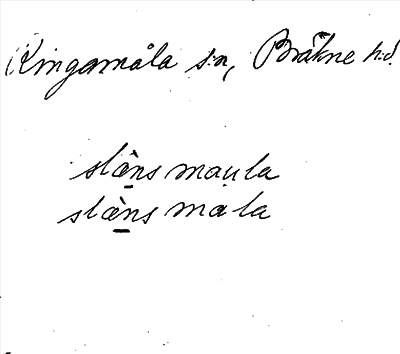 Ringamåla s:n, Bräkne h:d
slæ̀nsmau̩la
slæ̀nsmåla